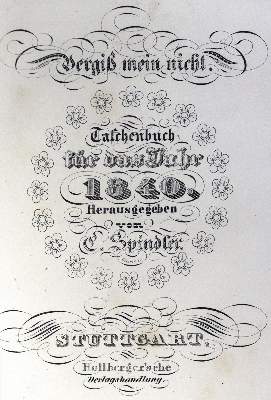 Vergiß mein nicht.
Taschenbuch
für das Jahr
1840,
Herausgegeben
von
C. Spindler.
STUTTGART.
Hallberger'sche
Verlagshandlung.